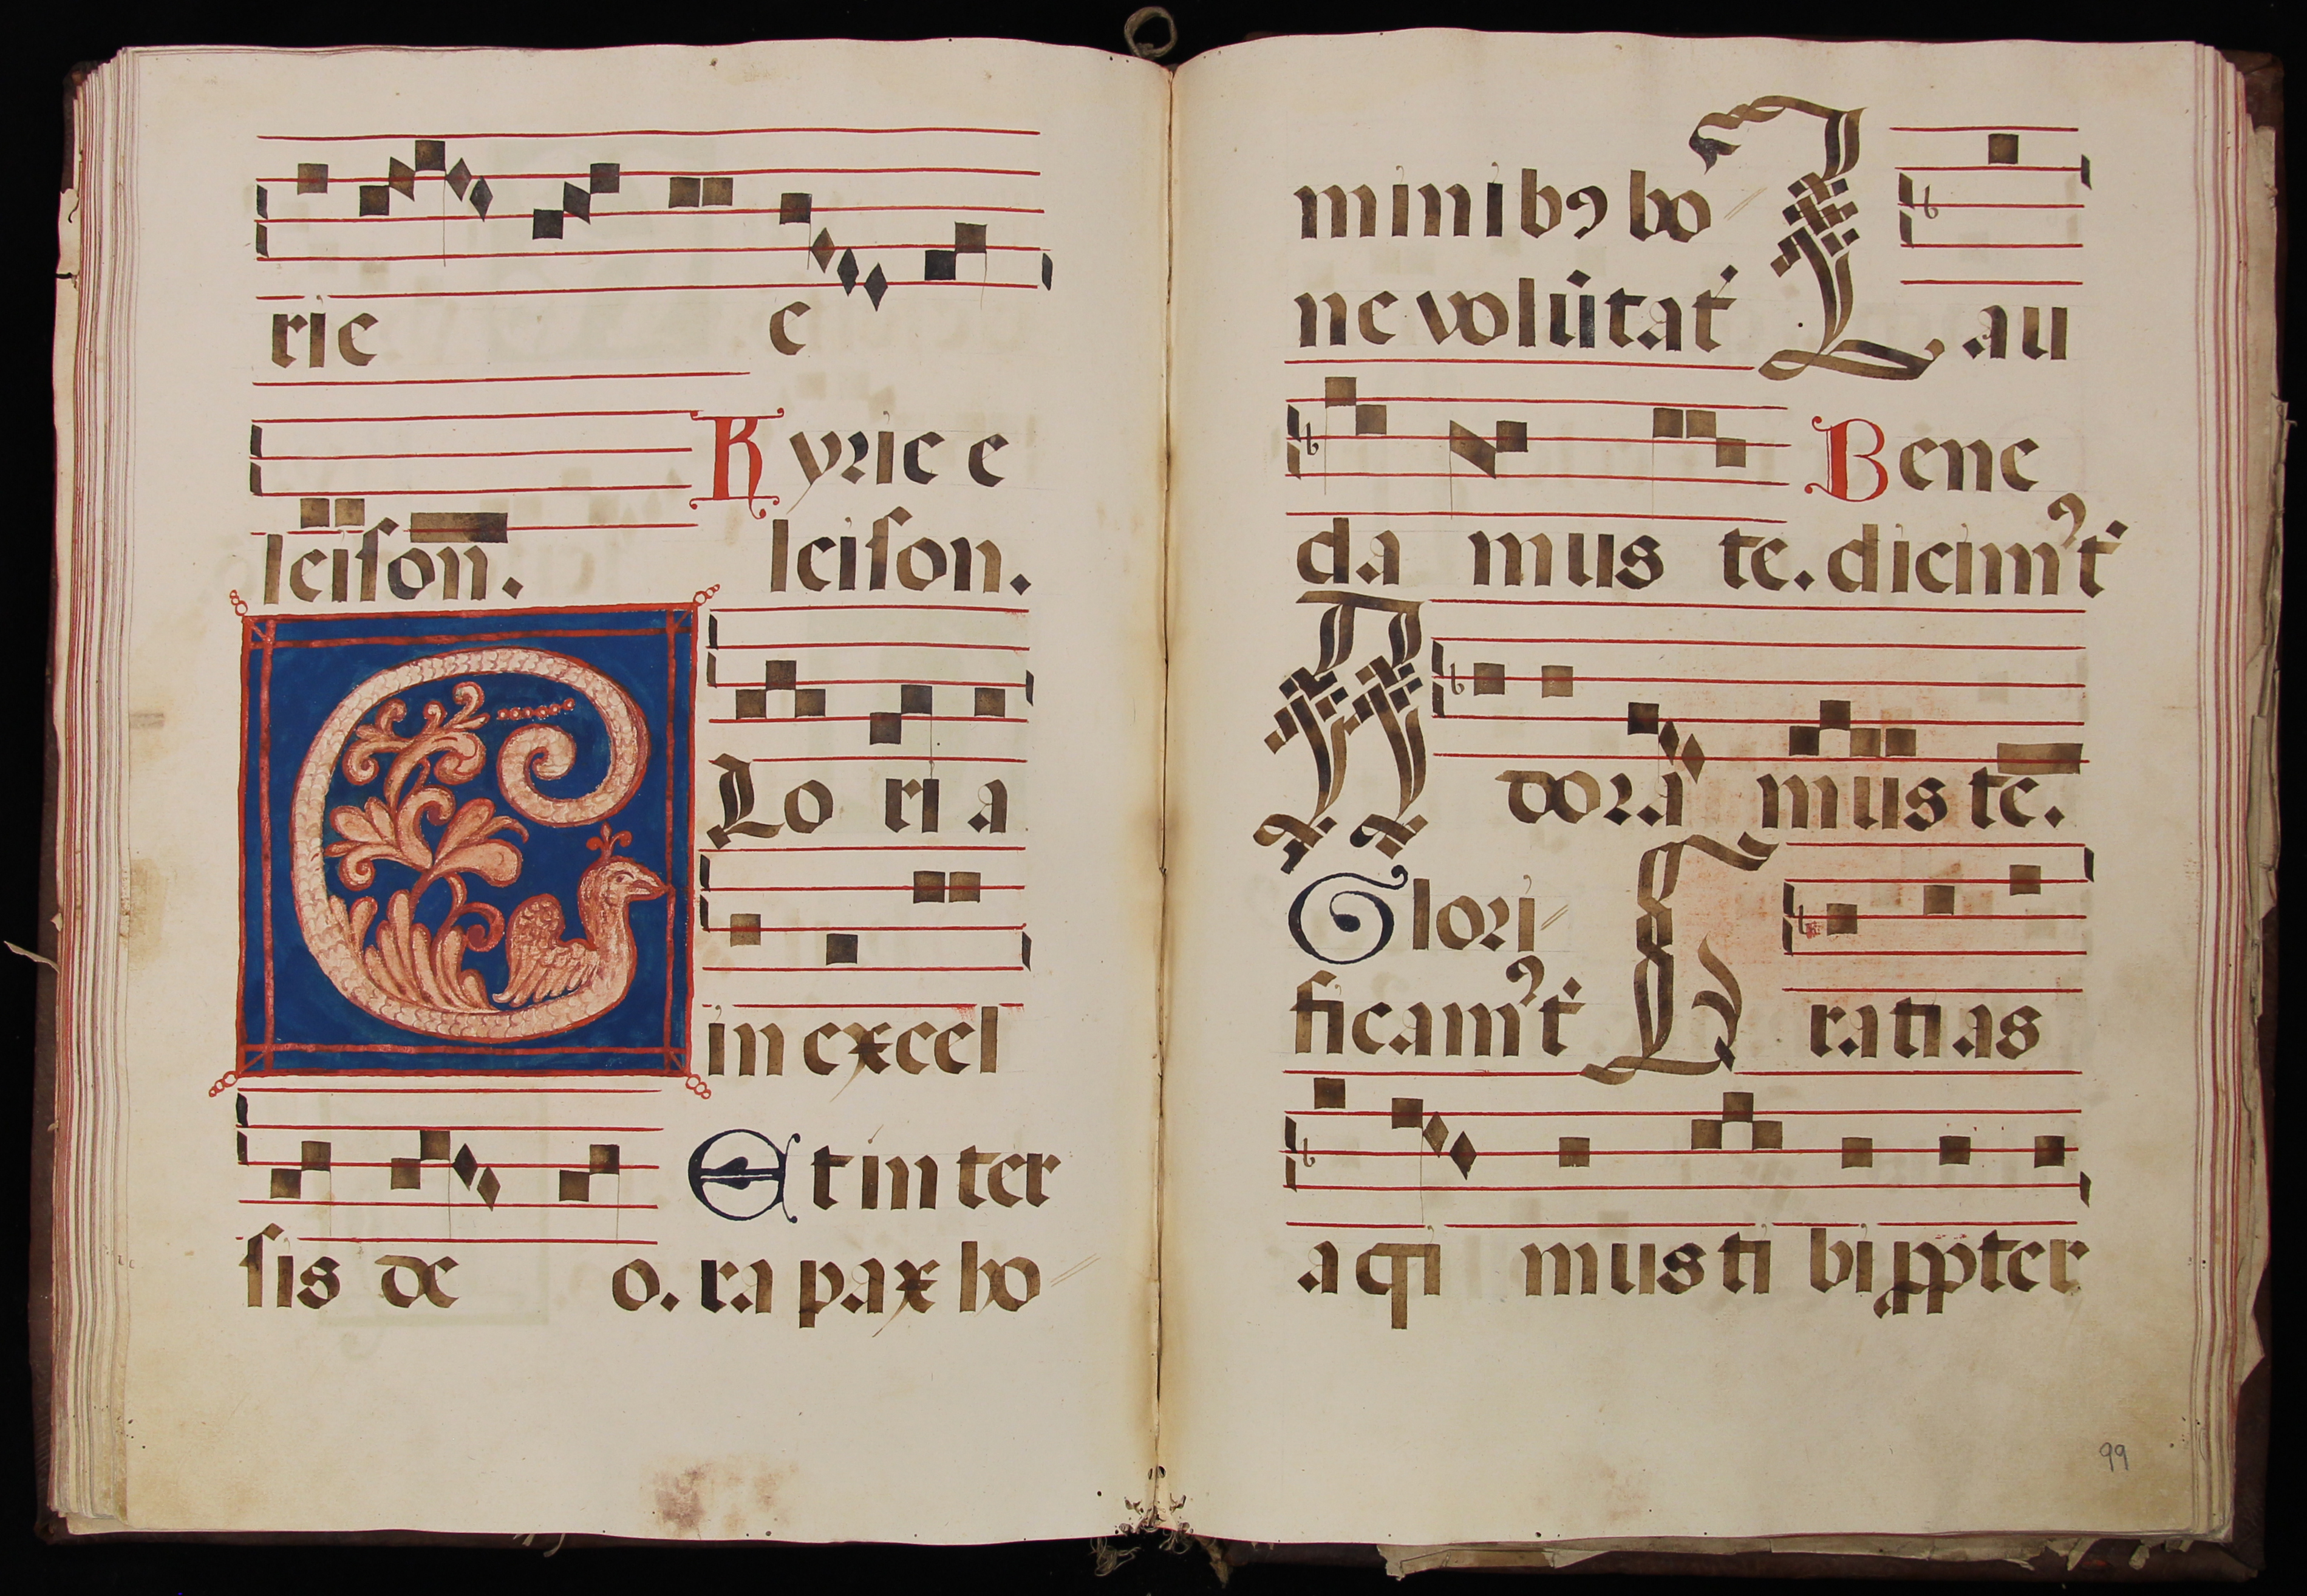 rie e
Kyrie e
leiſon. leiſon.
Glo ri a
in excel
Et in ter
ſis de o. ra pax ho
minibꝰ bo
ne volūtat̉ Lau
Bene
da mus te. dicimꝰ t̉
Adora mus te.
Glori
ficamꝰ t̉ Gratias
a gi mus ti bi ꝓpter
99